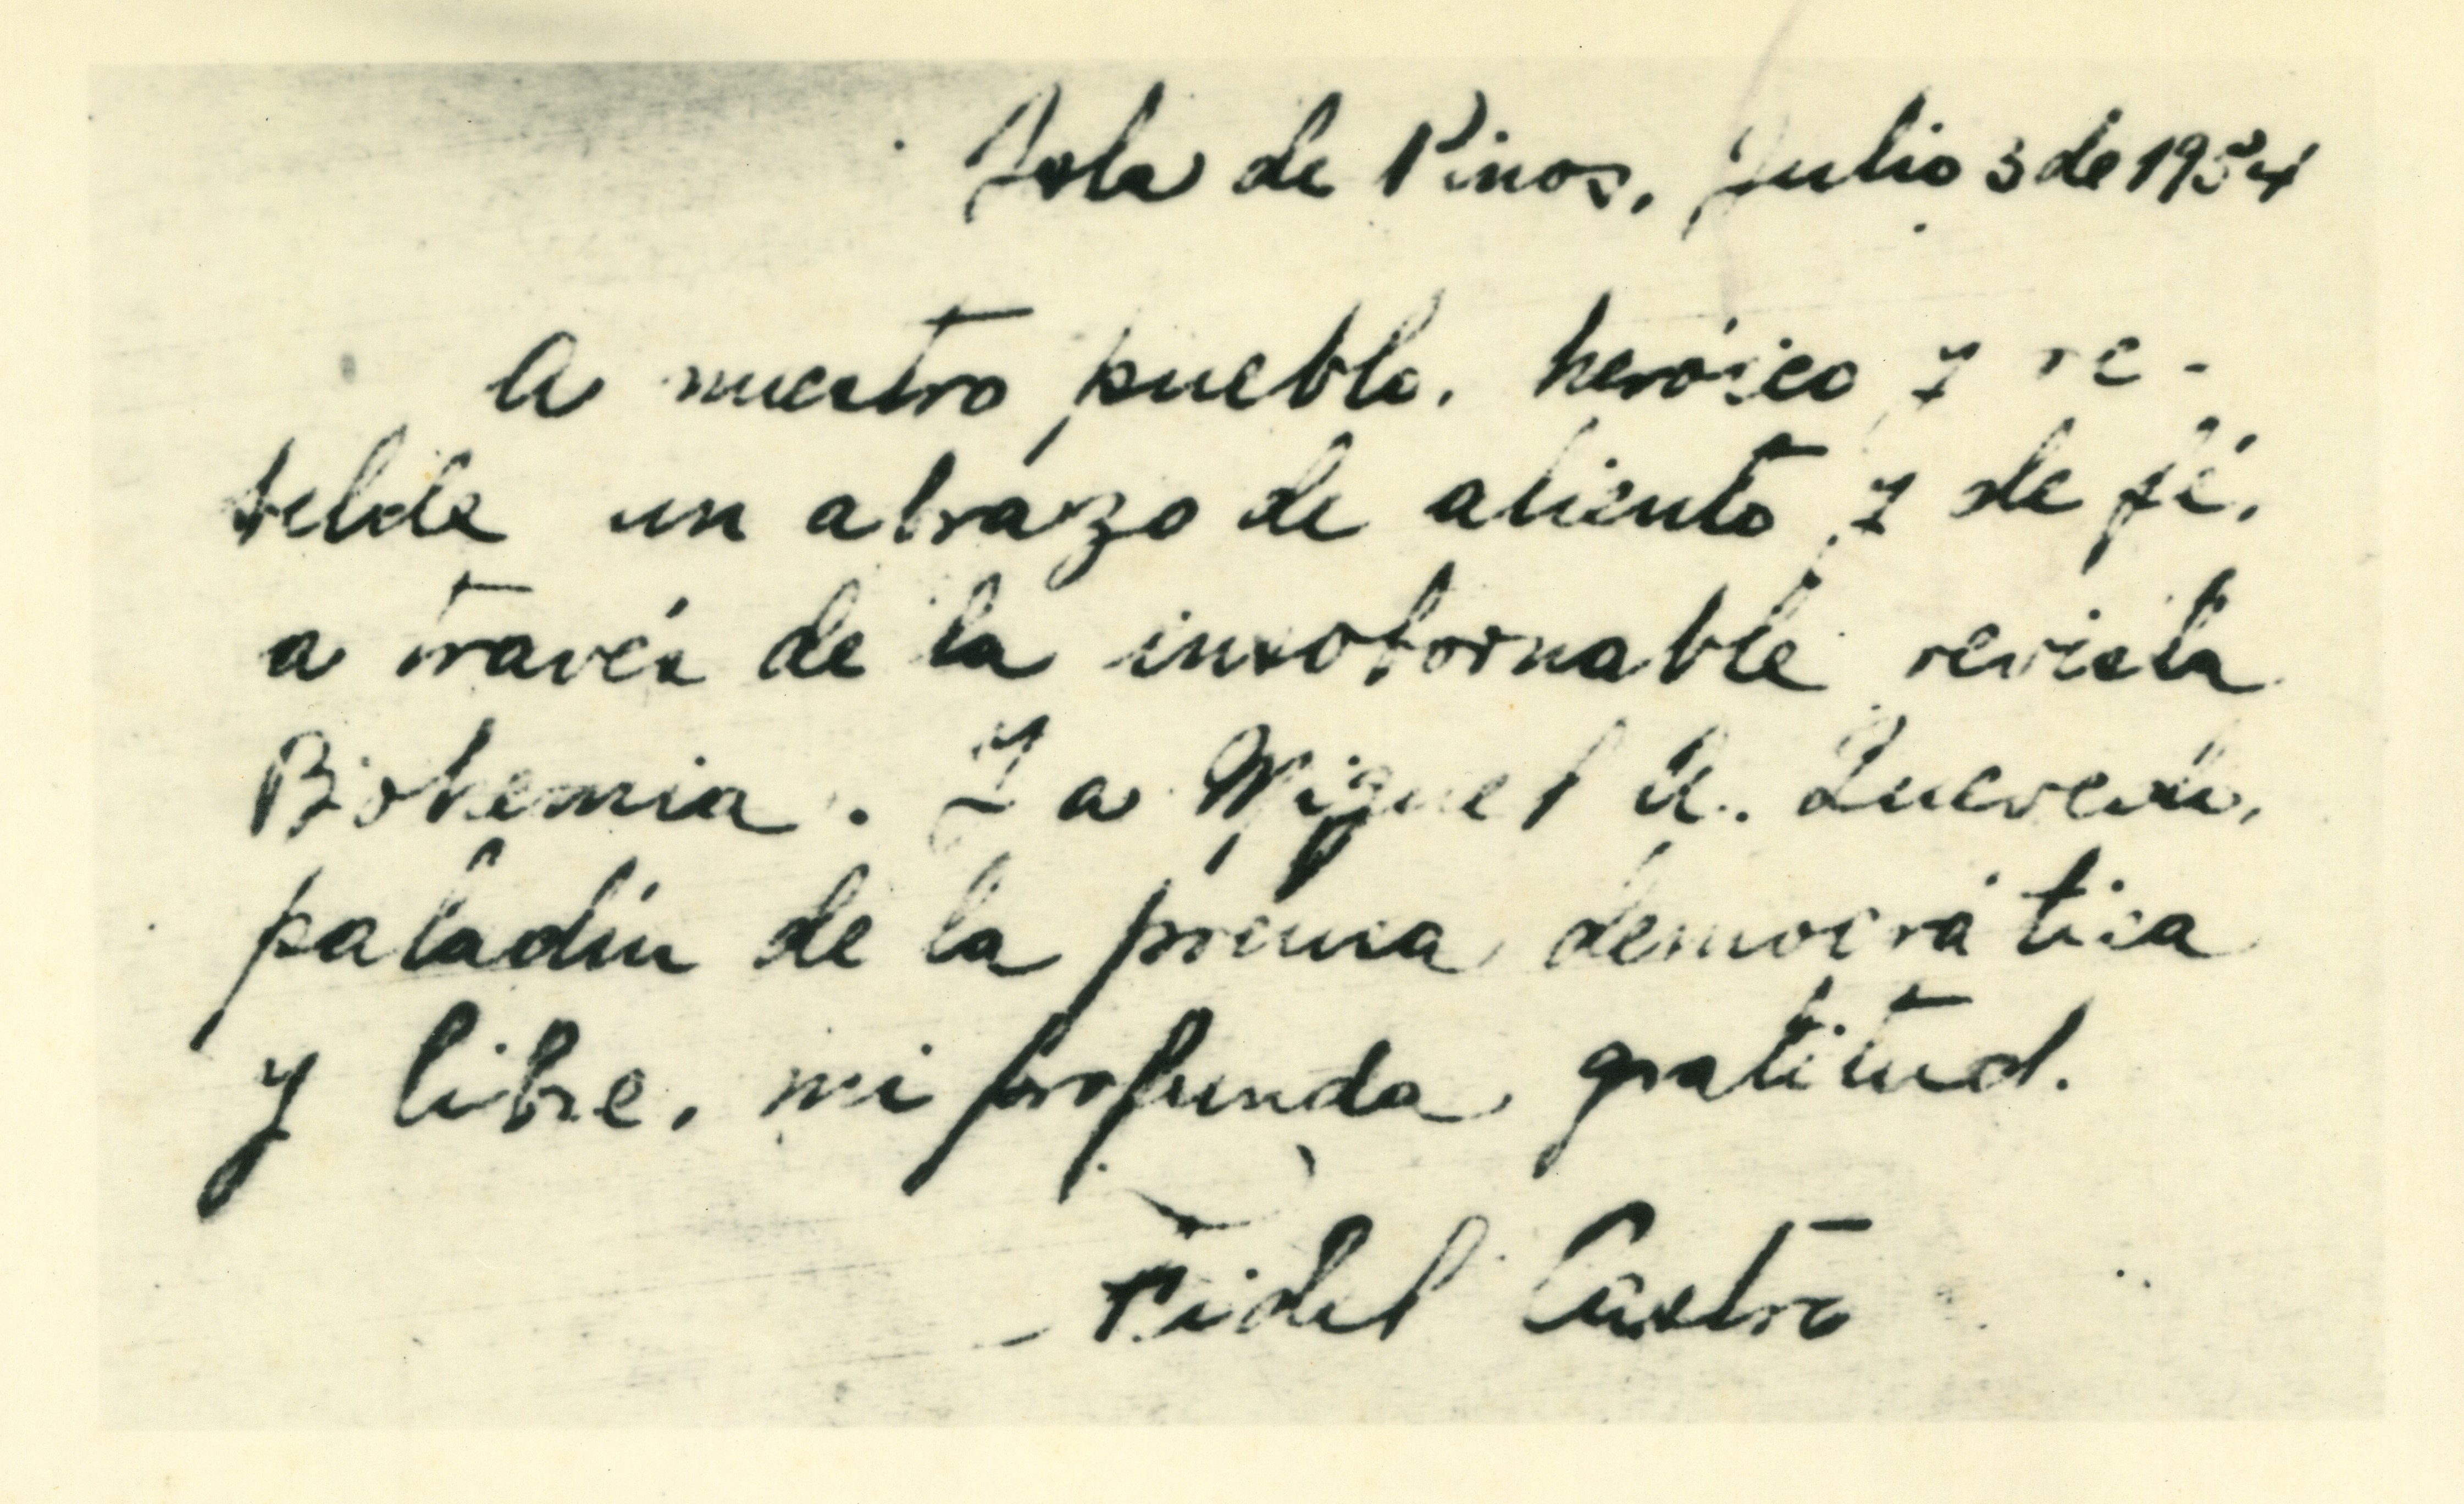 Isla de Pinos, Julio 3 de 1954
A nuestro pueblo, heróico y re-
belde un abrazo de aliento y de fé,
a través de la insobornable revista
Bohemia. Y a Miguel A. Quevedo,
paladín de la prensa democrática
y libre, mi profunda gratitud.
Fidel Castro